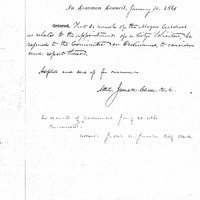 In Common Council, January 20, 1861
Ordered, That so much of the Mayor's address
as relates to the appointment of a City Solicitor, be
referred to the Committee on Ordinances, to consider
and report thereon.
and sent up for concurrence.
Attest, Clerk.
In Board of Aldermen, Jany 20. 1861
Concurred.
Attest, City Clerk